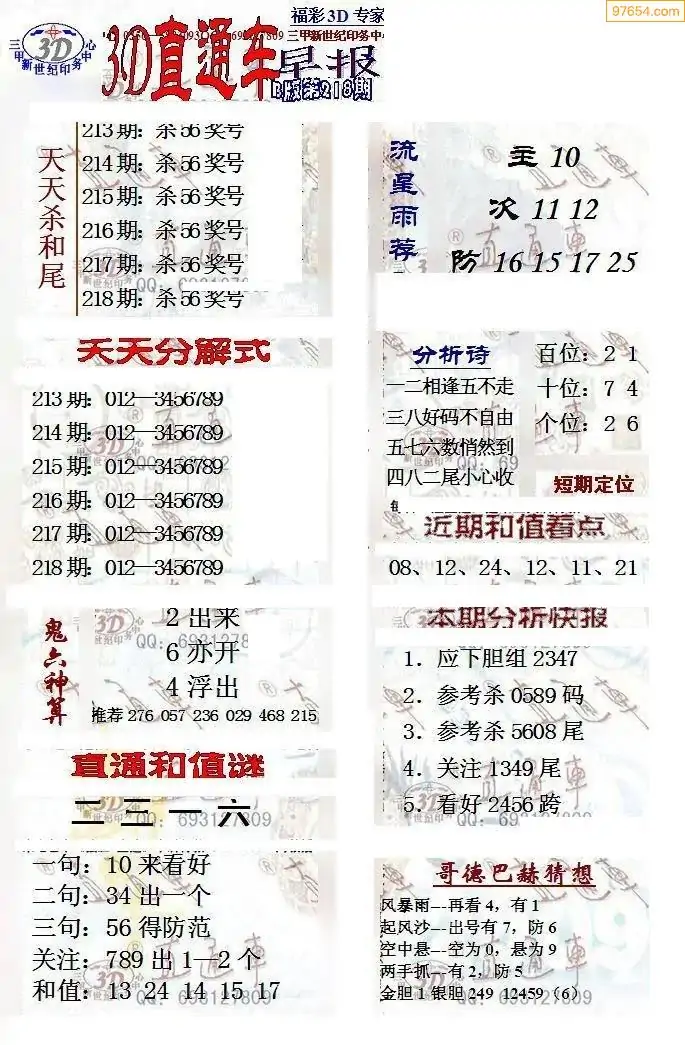 97654.com
福彩3D 专家
三甲新世纪印务中心
3D直通车
早报
B版第218期
天天杀和尾
213期：杀56奖号
214期：杀56奖号
215期：杀56奖号
216期：杀56奖号
217期：杀56奖号
218期：杀56奖号
流星雨荐
主 10
次 11 12
防 16 15 17 25
天天分解式
213期：012—3456789
214期：012—3456789
215期：012—3456789
216期：012—3456789
217期：012—3456789
218期：012—3456789
分析诗
一二相逢五不走
三八好码不自由
五七六数悄然到
四八二尾小心收
百位：2 1
十位：7 4
个位：2 6
短期定位
近期和值看点
08、12、24、12、11、21
鬼六神算
2出来
6亦开
4浮出
推荐 276 057 236 029 468 215
本期分析快报
1．应下胆组2347
2．参考杀0589码
3．参考杀5608尾
4．关注1349尾
5．看好2456跨
直通和值谜
二三一六
一句：10来看好
二句：34出一个
三句：56得防范
关注：789出1—2个
和值：13 24 14 15 17
哥德巴赫猜想
风暴雨---再看4，有1
起风沙---出号有7，防6
空中悬---空为0，悬为9
两手抓---有2，防5
金胆1 银胆249 12459（6）